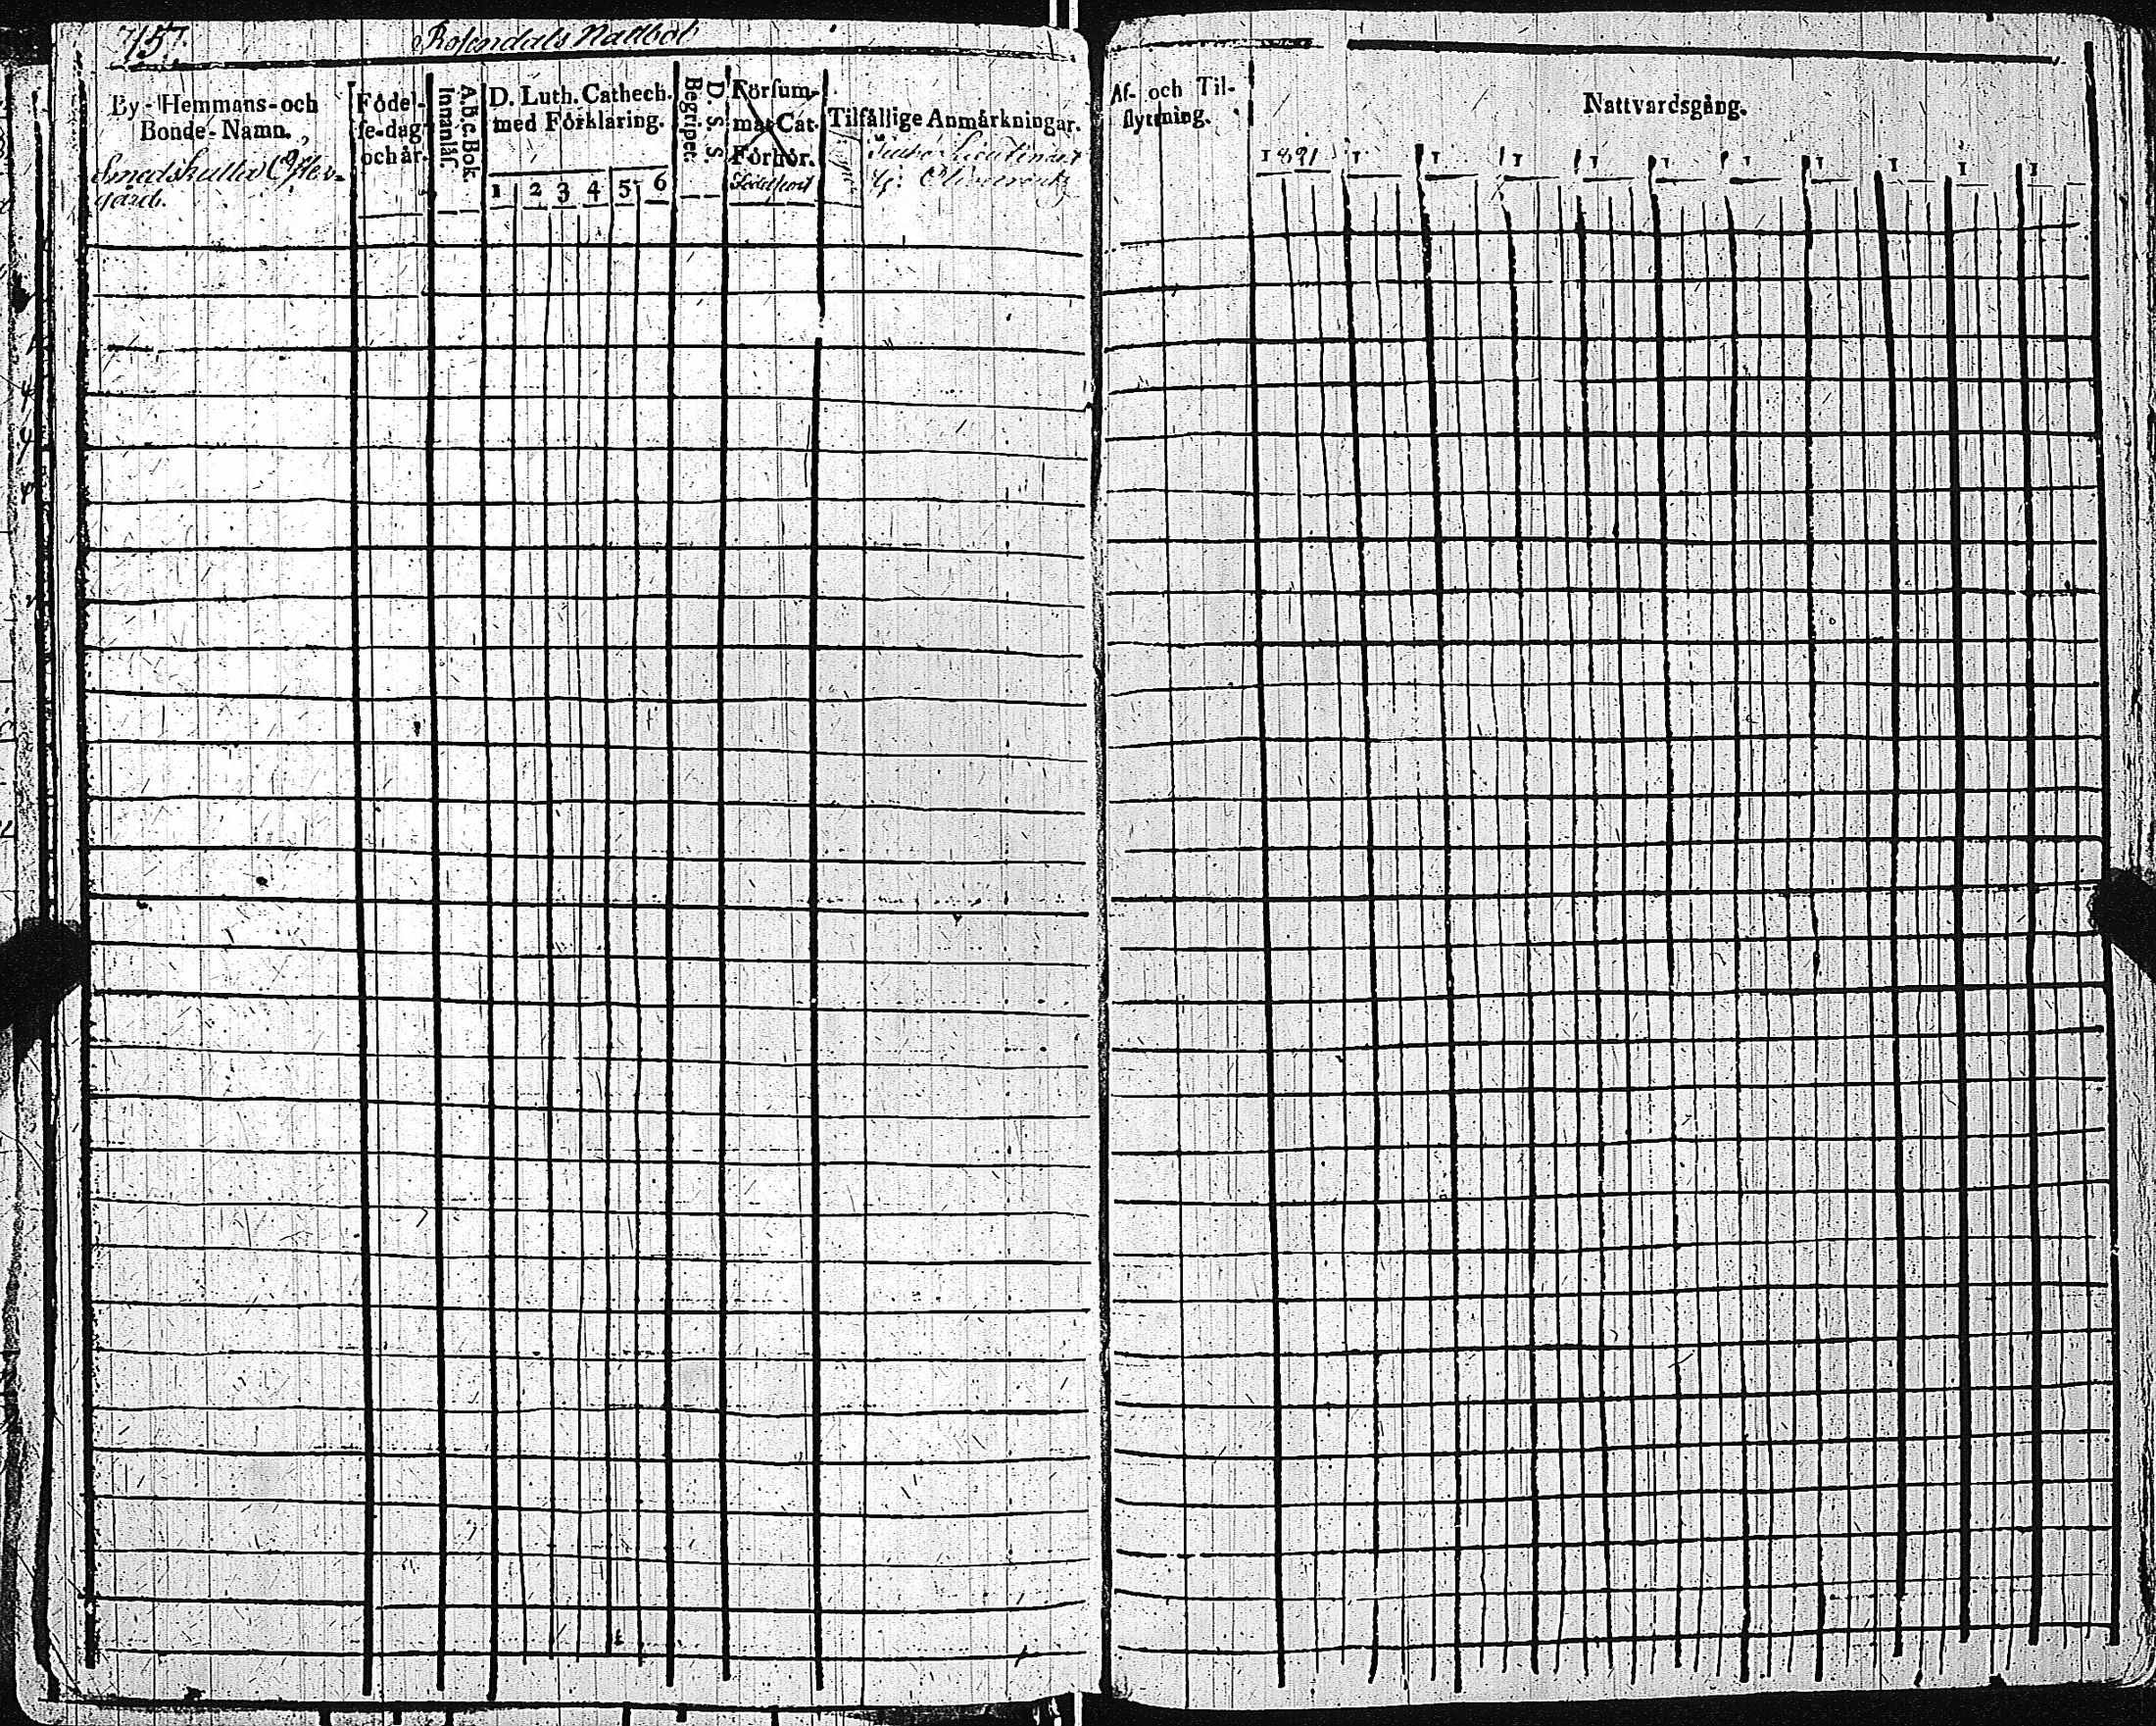 757.
Rosendals Nattbol
By- Hemmans- och
Bonde- Namn.
Smedskulla Öster-
gård.
Födel-
se-dag
och år.
A.B.C. Bok.
Innanläs.
D. Luth. Cathech.
med Förklaring.
1 2 3 4 5 6
D. S. S.
Begripet.
Försum-
mat Cat.
Förhör.
Tilfällige Anmärkningar.
Lieutenant
Af- och Til-
flyttning.
Nattvardsgång.
1821 1 1 1 1 1 1 1 1 1 1